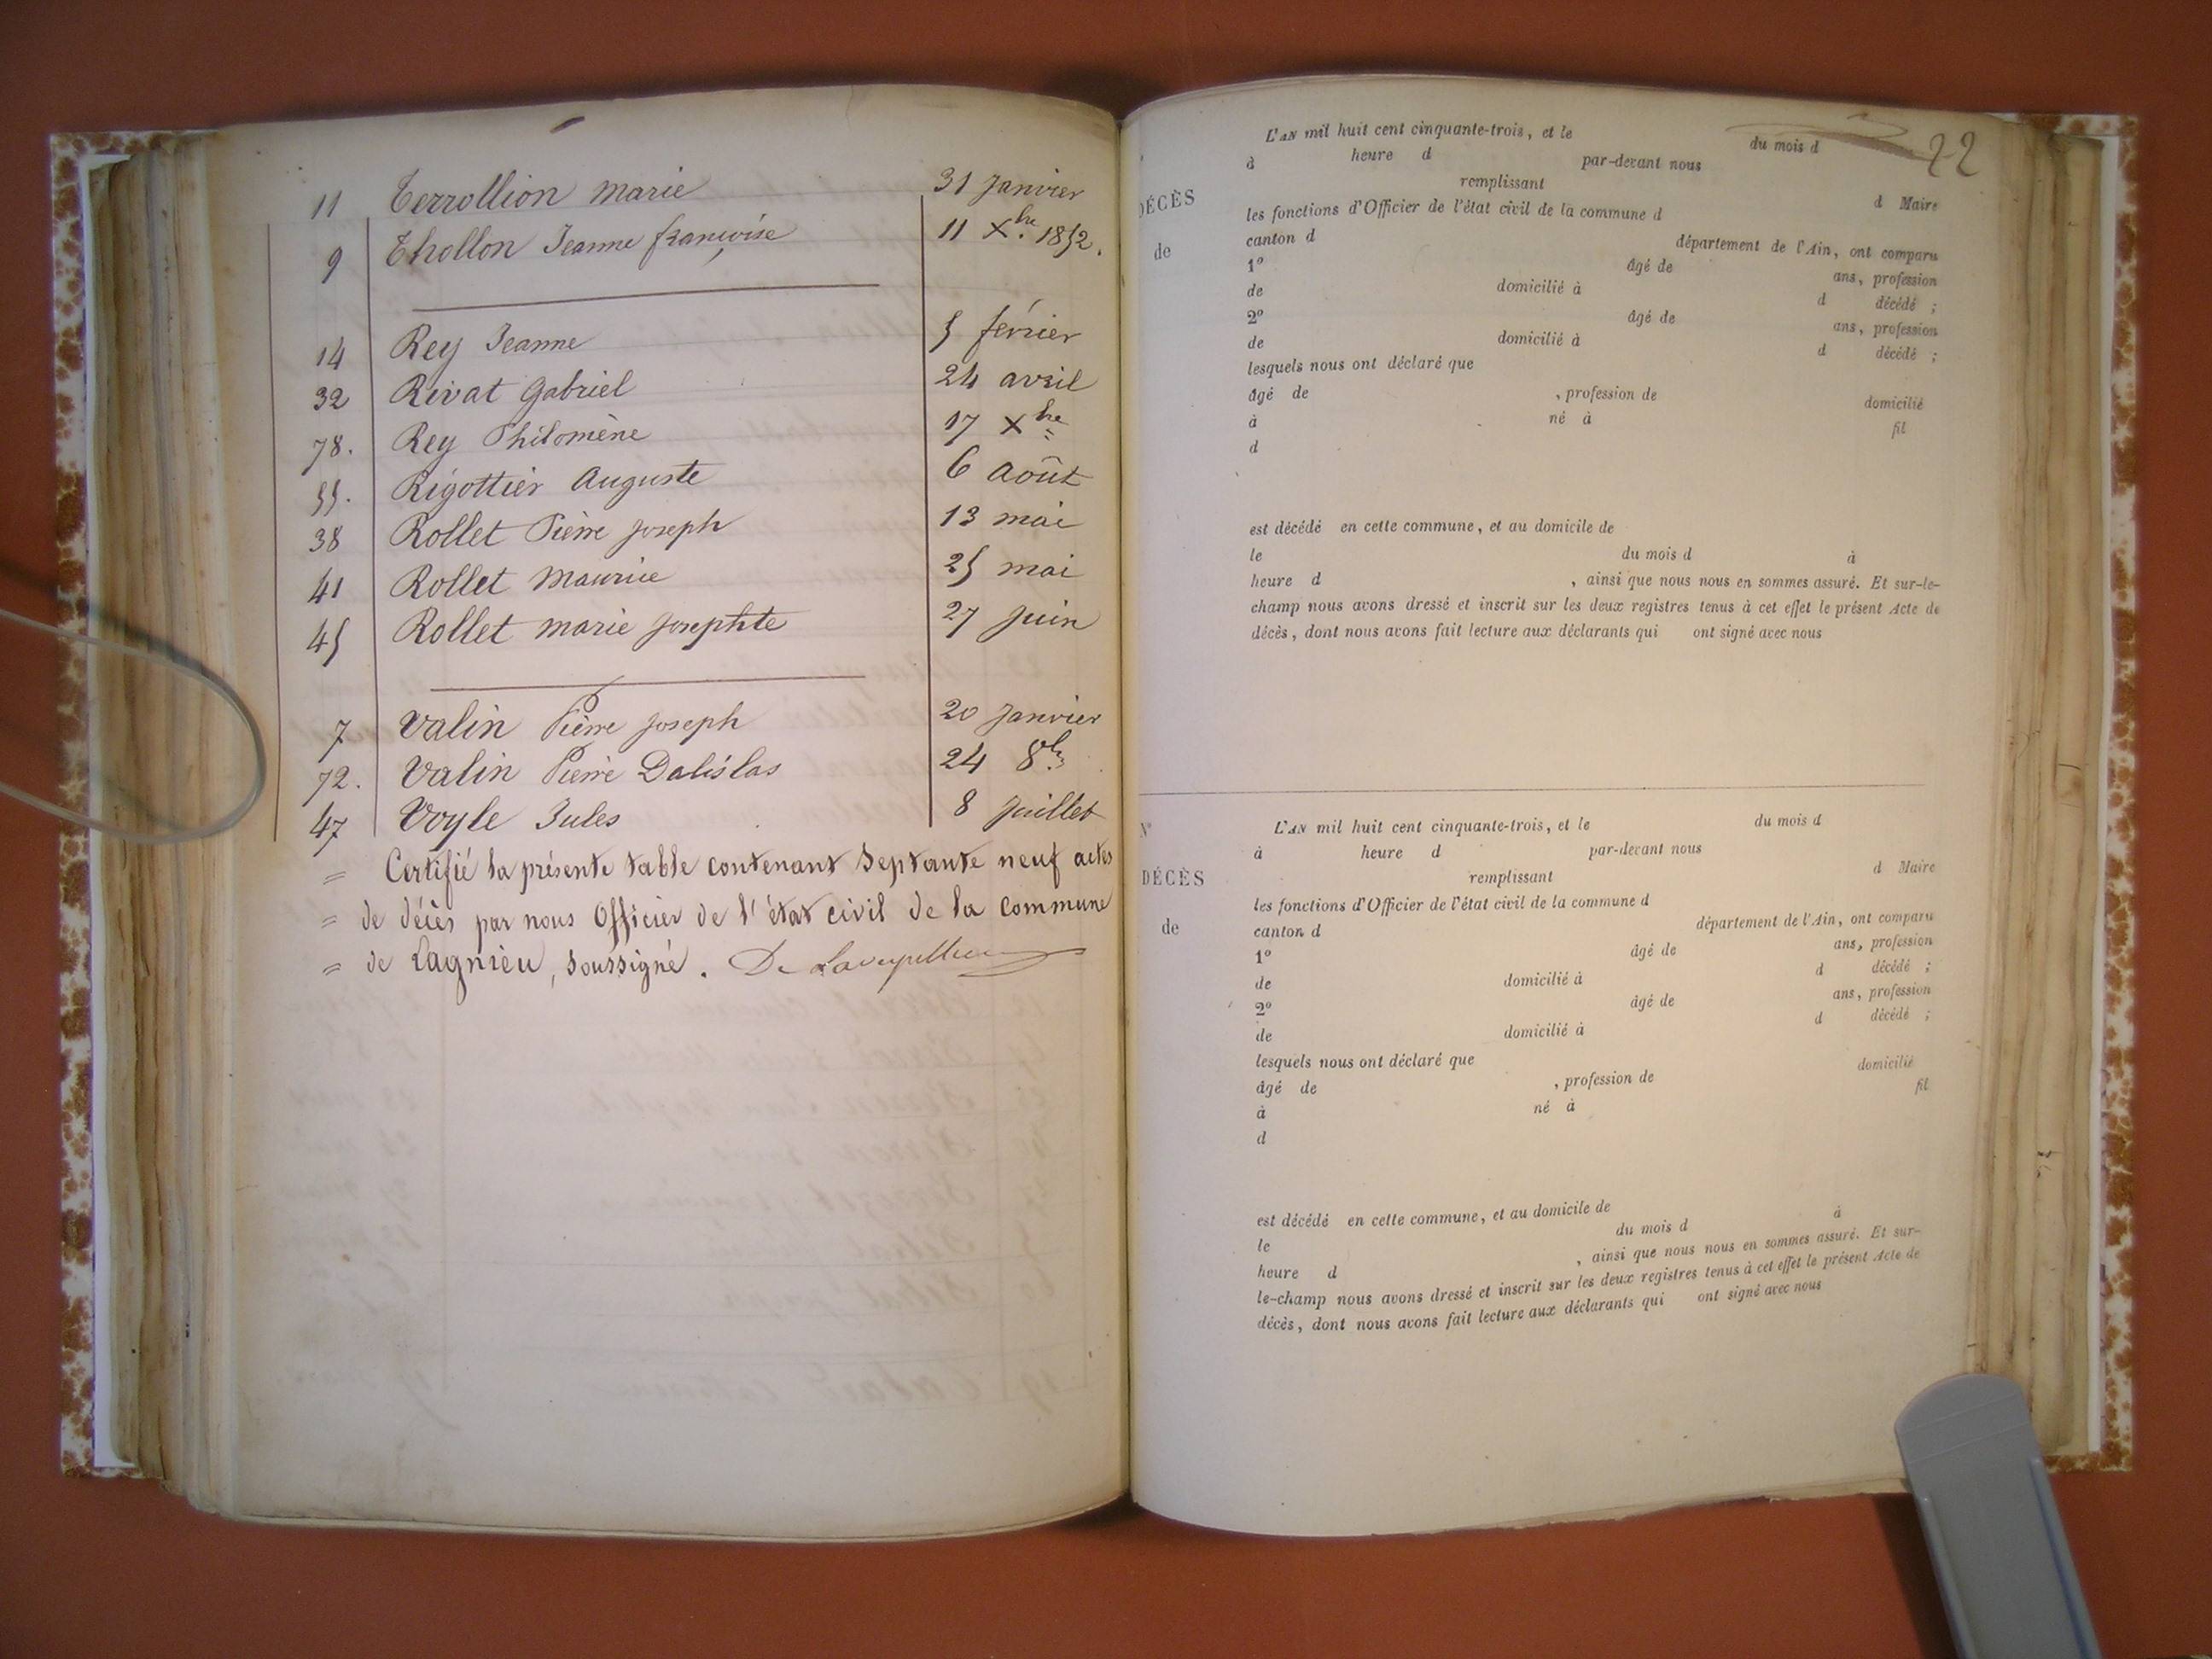 11 Terrollion marie 31 Janvier
9 Thollon Jeanne françoise 11 Xbre 1852.
14 Rey Jeanne 5 février
32 Rivat Gabriel 24 avril
78. Rey Philomène 17 Xbre
55. Rigottier Auguste 6 Août
38 Rollet Pierre joseph 13 mai
41 Rollet Maurice 25 mai
45 Rollet marie josephte 27 Juin
7 Valin Pierre joseph 20 Janvier
72. Valin Pierre Dalislas 24 8bre
47 Voyle Jules 8 Juillet
= Certifié la présente table contenant Septante neuf actes
= de décès par nous Officier de l'état civil de la Commune
= de Lagnieu, soussigné.
22
L'AN mil huit cent cinquante-trois, et le du mois d
à heure d par-devant nous
remplissant d Maire
DÉCÈS
les fonctions d'Officier de l'état civil de la commune d
de
canton d département de l'Ain, ont comparu
1º âgé de ans, profession
de domicilié à d décédé ;
2º âgé de ans, profession
de domicilié à d décédé ;
lesquels nous ont déclaré que
âgé de , profession de domicilié
à né à fil
d
est décédé en cette commune, et au domicile de
le du mois d à
heure d , ainsi que nous nous en sommes assuré. Et sur-le-
champ nous avons dressé et inscrit sur les deux registres tenus à cet effet le présent Acte de
décès, dont nous avons fait lecture aux déclarants qui ont signé avec nous
Nº L'AN mil huit cent cinquante-trois, et le du mois d
à heure d par-devant nous
DÉCÈS remplissant d Maire
les fonctions d'Officier de l'état civil de la commune d
de canton d département de l'Ain, ont comparu
1º âgé de ans, profession
de domicilié à d décédé ;
2º âgé de ans, profession
de domicilié à d décédé ;
lesquels nous ont déclaré que
âgé de , profession de domicilié
à né à fil
d
est décédé en cette commune, et au domicile de
le du mois d à
heure d , ainsi que nous nous en sommes assuré. Et sur-
le-champ nous avons dressé et inscrit sur les deux registres tenus à cet effet le présent Acte de
décès, dont nous avons fait lecture aux déclarants qui ont signé avec nous